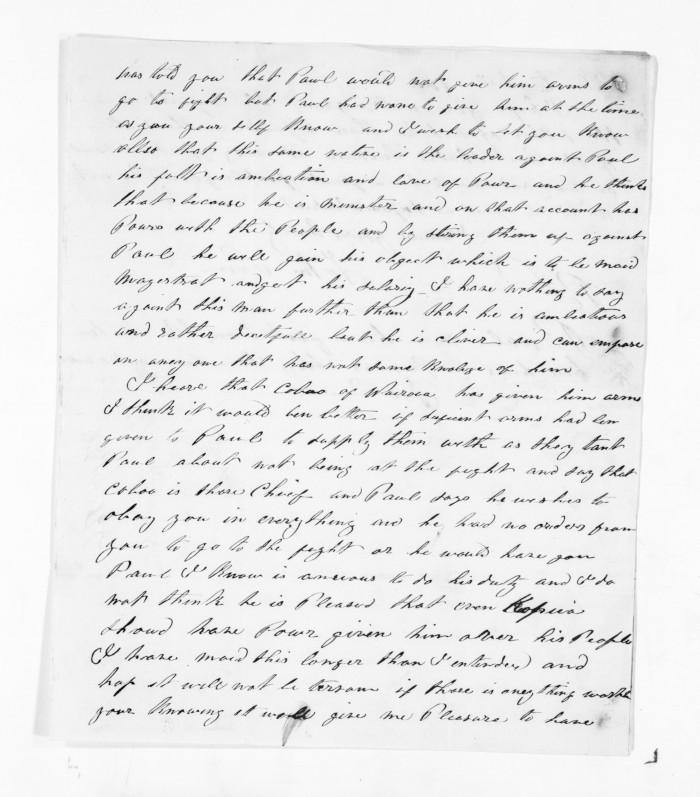 has told you that Paul would not give him arms to
go to fight but Paul had none to give him at the time
as you your self Know and I wish to let you Know
allso that this same native is the leader against Paul
his falt is ambection and love of Pour and he thinks
that because he is minester and on that account has
Pours with the People and by stiring them up against
Paul he will gain his obgect which is to be maid
Magerstrat and get his salery I have nothing to say
against this man further than that he is ambetious
and rather decetfull but he is cliver and can empose
on aney one that has not some Knolige of him
I heare that Coboo of Wairoua has given him arms
I think it would ben better if suficent arms had ben
given to Paul to supply them with as they tant
Paul about not being at the fight and say that
Coboo is thare Chief and Paul says he wishes to
obay you in everything and he had no orders from
you to go to the fight or he would have gon
Paul I Know is anxious to do his duty and I do
not think he is Pleased that even Kopua
shoud have Pour given him over his People
I have maid this longer than I entended and
hop it will not be tersom if thare is aneything worth
your Knowing it will give me Pleasure to have